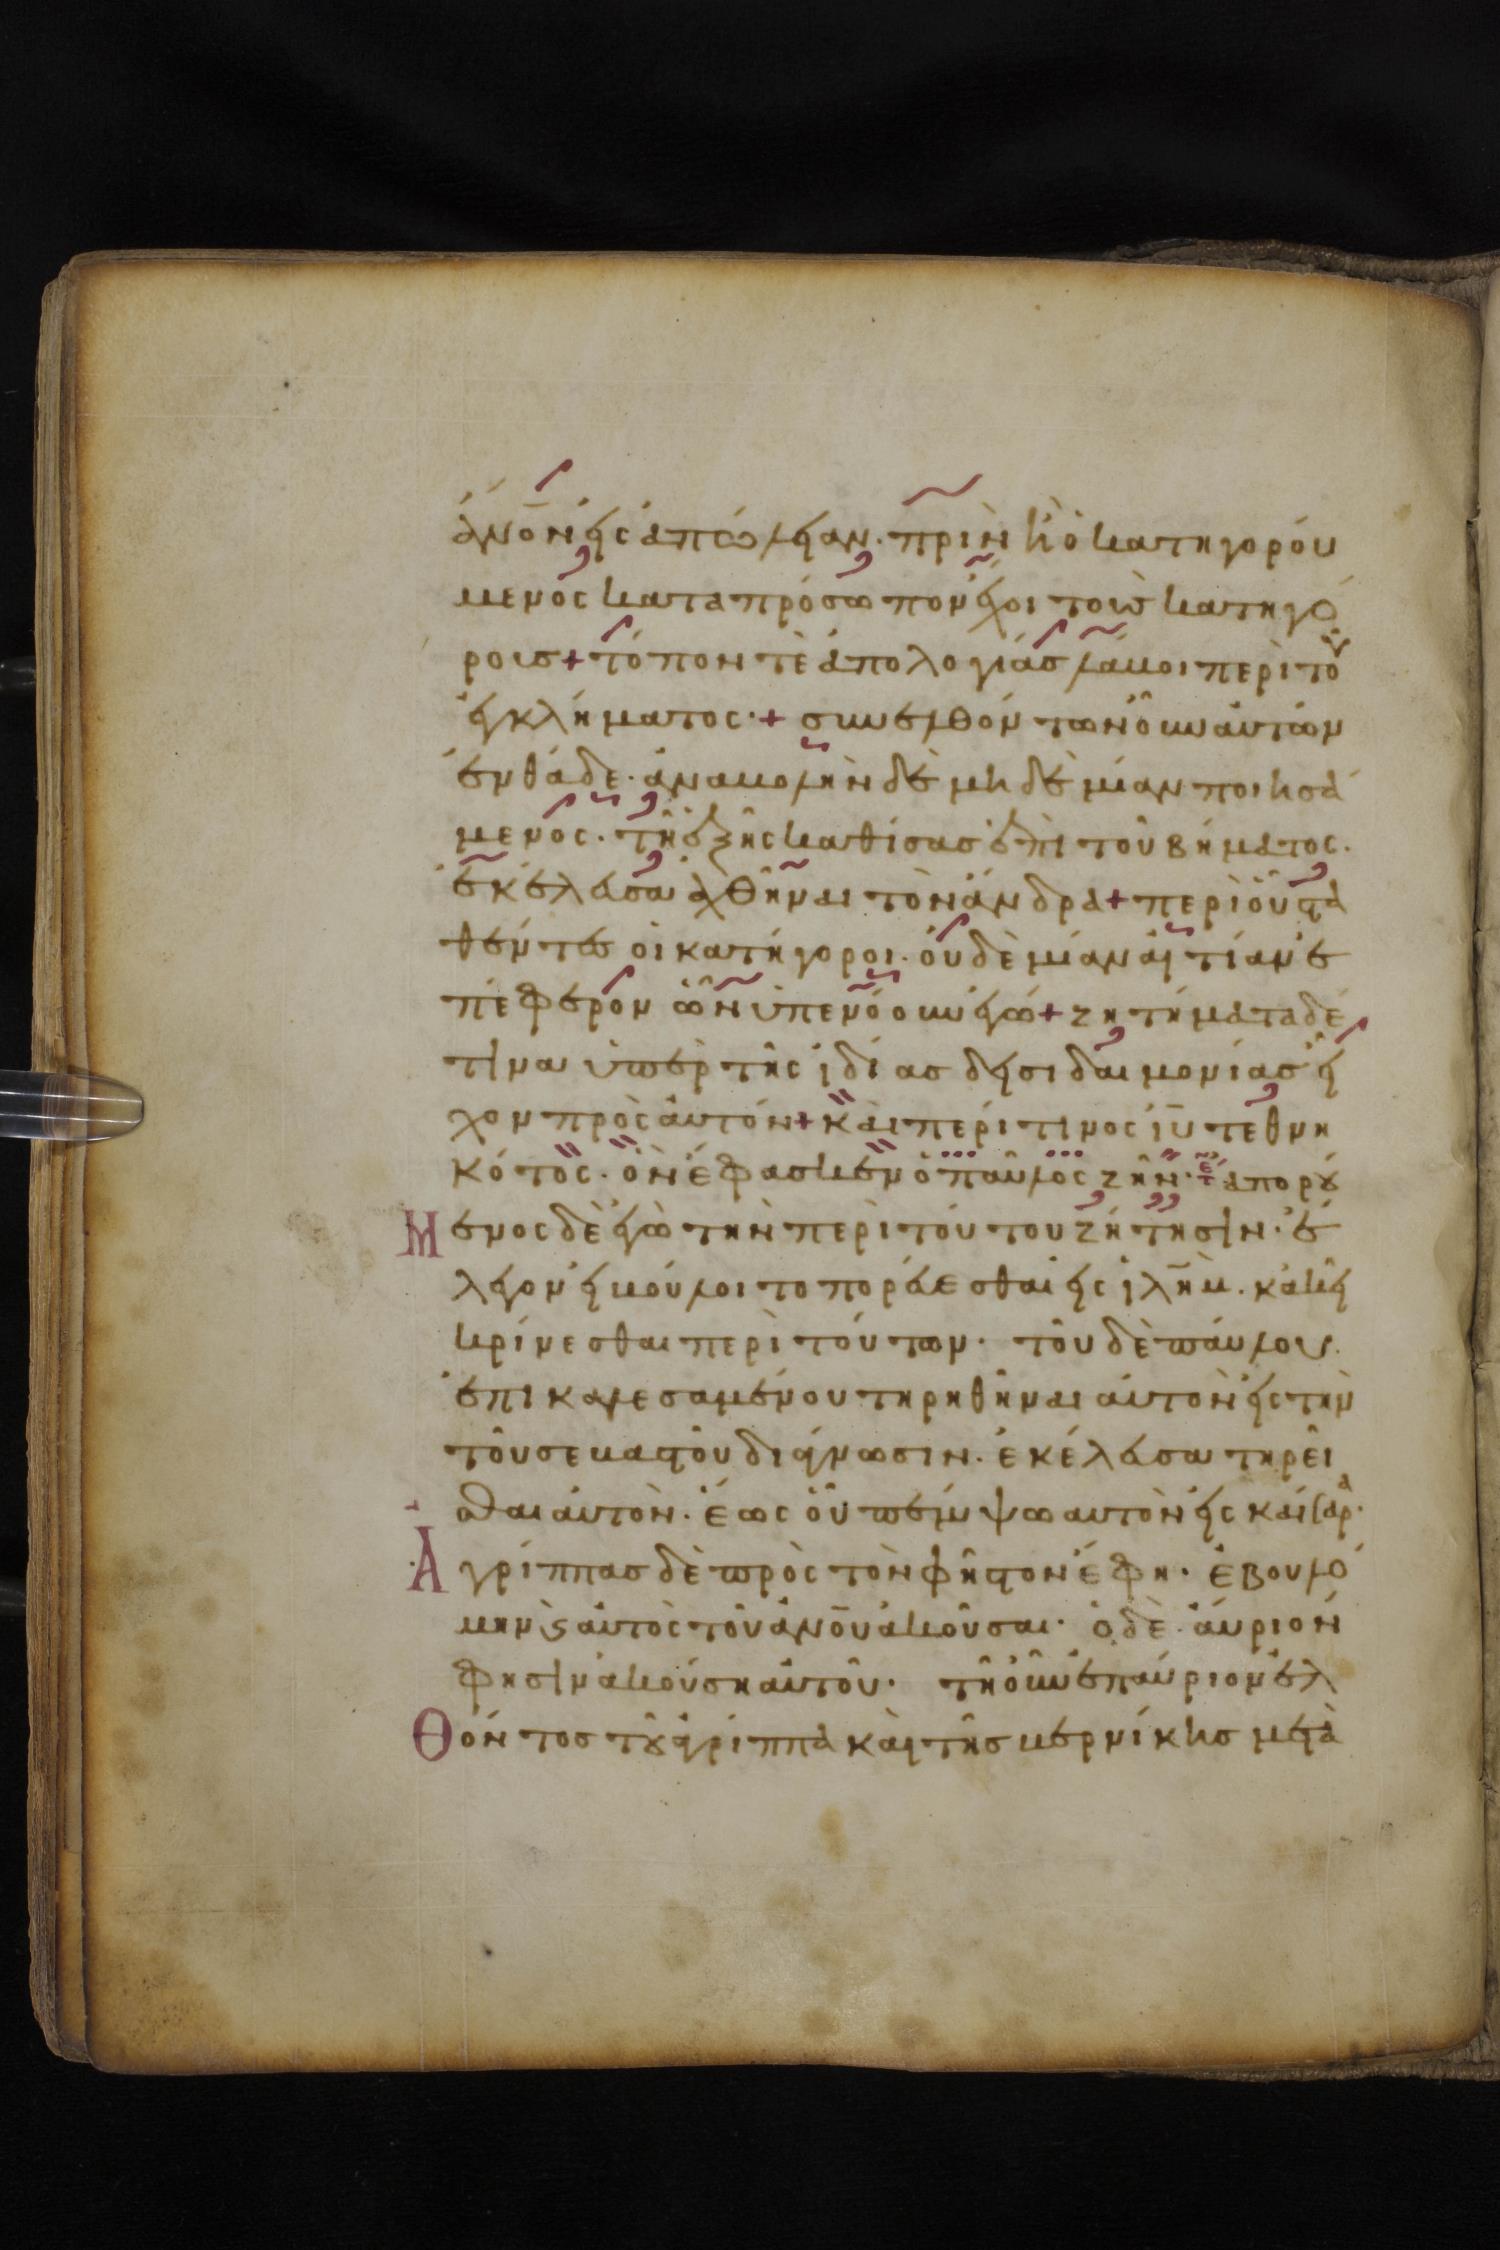 ἄνο̄ν εἰς ἀπώλειαν. πρὶν ἢ ὁ κατηγορού
μενος κατα πρόσωπον ἔχοι τοὺς κατηγό
ροις + τόπον τὲ ἀπολογίας λάβοι περὶ τοῦ
ἐγκλήματος· + συνελθόντων οὖν αὐτῶν
ἐνθάδε. ἀναβολὴν δὲ μηδὲ μίαν ποιησά
μενος. τῆ ἑξῆς καθίσας ἐπὶ τοῦ βήματος.
ἐκέλευσα ἀχθῆναι τὸν ἄνδρα + περὶ οὗ στα
θέντες οἱ κατήγοροι. οὐδὲ μίαν αἰτίαν ἐ
πέφερον ὧν ὑπενόουν ἐγώ + ζητήματα δέ
τινα ὑπὲρ τῆς ἰδίας δεισιδαιμονίας εἶ
χον πρὸς αὐτόν + καὶ περί τινος ἰῡ τεθνη
κότος. ὃν ἔφασκεν ὁ παῦλος ζῆν. + ἀπορού
Μ ενος δὲ ἐγὼ τὴν περὶ τούτου ζήτησιν. ἔ
λεγον εἰ βούλοι το πορεύεσθαι εἰς ἰλη̄μ. κἀκεῖ
κρίνεσθαι περὶ τούτων. τοῦ δὲ παύλου
ἐπικαλεσαμένου τηρηθῆναι αὐτὸν εἰς τὴν
τοῦ σεβαστοῦ διάγνωσιν. ἐκέλευσα τηρεῖ
σθαι αὐτὸν. ἕως οὗ πέμψω αὐτὸν εἰς καίσαρα.
Ἀ γρίππας δὲ πρὸς τὸν φῆστον ἔφη. ἐβουλό
μην ϗ αὐτὸς τοῦ ἀνο̄υ ἀκοῦσαι. ὁ δὲ. αὔριον
φησὶν ἀκούση αὐτοῦ. τῆ οὖν ἐπαύριον ἐλ
Θ όντος τοῦ ἀγρίππα καὶ τῆς βερνίκης μετὰ